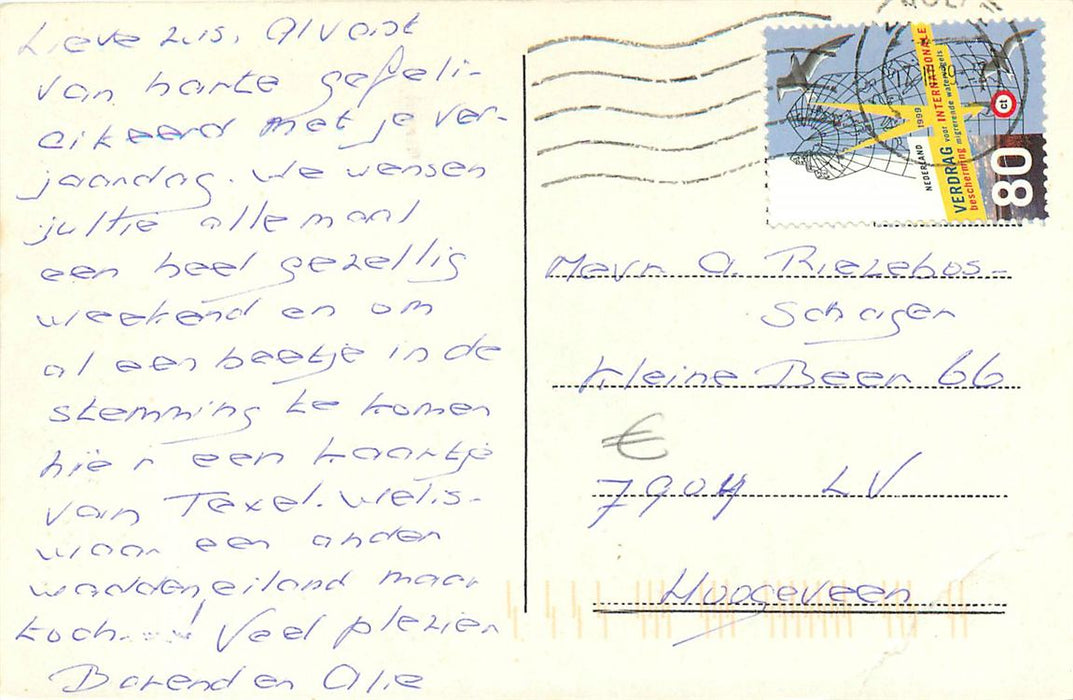 Lieve zus, Alvast
van harte gefeli-
citeerd met je ver-
jaardag. We wensen
jullie allemaal
een heel gezellig
weekend en om
al een beetje in de
stemming te komen
hier een kaartje
van Texel. Welis-
waar een ander
waddeneiland maar
toch....! Veel plezier
Barend en Alie
NEDERLAND 1999
VERDRAG voor INTERNATIONALE
bescherming migrerende watervogels
ct
80
Mevr. A. Riezebos-
Schagen
Kleine Beer 66
€
7904 LV
Hoogeveen